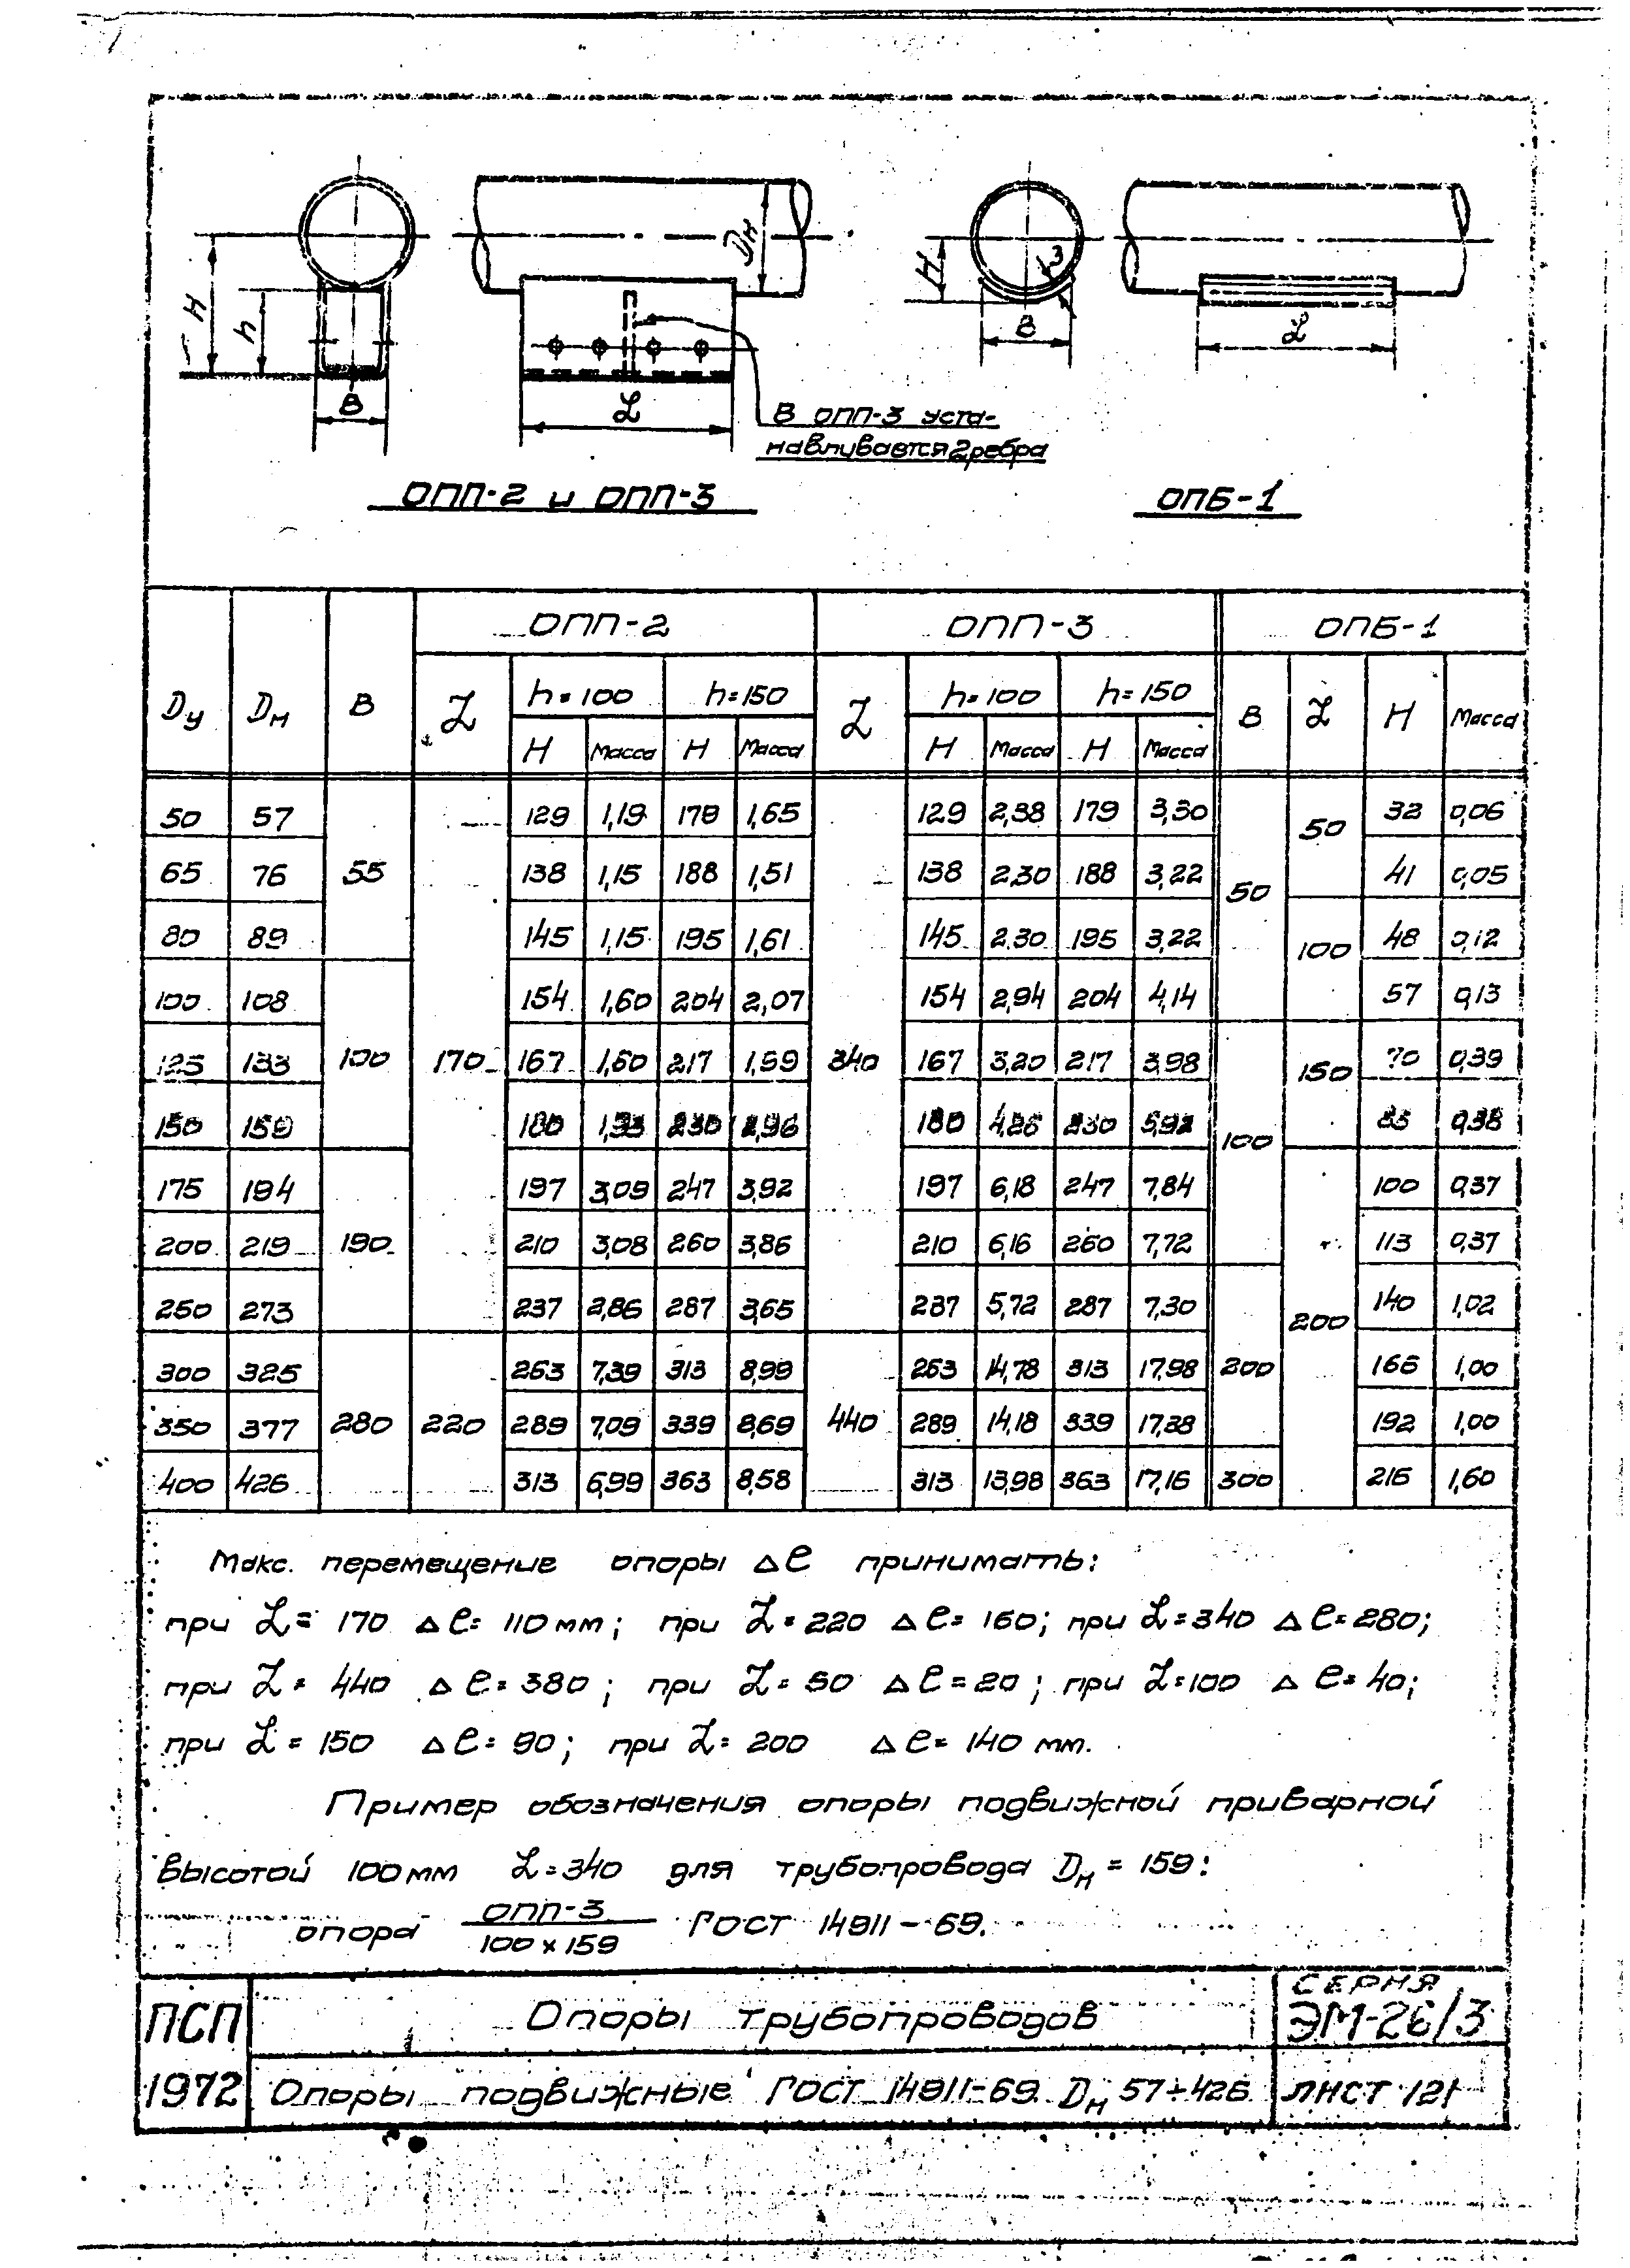 H h B Dн L
В ОПП-3 уста-
навливается 2 ребра
ОПП-2 и ОПП-3
H 3 B L
ОПБ-1
Dу Dн B ОПП-2 ОПП-3 ОПБ-1
L h=100 h=150 L h=100 h=150 B L H Масса
H Масса H Масса H Масса H Масса
50 57 129 1,19 179 1,65 129 2,38 179 3,30 50 32 0,06
65 76 55 138 1,15 188 1,51 138 2,30 188 3,22 50 41 0,05
80 89 145 1,15 195 1,61 145 2,30 195 3,22 100 48 0,12
100 108 154 1,60 204 2,07 154 2,94 204 4,14 57 0,13
125 133 100 170 167 1,60 217 1,99 340 167 3,20 217 3,98 150 70 0,39
150 159 180 230 2,96 180 4,26 230 5,92 100 83 0,38
175 194 197 3,09 247 3,92 197 6,18 247 7,84 100 0,37
200 219 190 210 3,08 260 3,86 210 6,16 260 7,72 113 0,37
250 273 237 2,86 287 3,65 237 5,72 287 7,30 200 140 1,02
300 325 263 7,39 313 8,99 263 14,78 313 17,98 200 166 1,00
350 377 280 220 289 7,09 339 8,69 440 289 14,18 339 17,38 192 1,00
400 426 313 6,99 363 8,58 313 13,98 363 17,16 300 216 1,60
Макс. перемещение опоры Δℓ принимать:
при L= 170 Δℓ= 110 мм; при L= 220 Δℓ= 160; при L=340 Δℓ=280;
при L= 440 Δℓ=380; при L= 50 Δℓ=20; при L=100 Δℓ= 40;
при L= 150 Δℓ= 90; при L= 200 Δℓ= 140 мм.
Пример обозначения опоры подвижной приварной
высотой 100 мм L=340 для трубопровода Dн = 159:
опора ОПП-3 / 100 х 159 ГОСТ 14911-69.
ПСП Опоры трубопроводов СЕРИЯ
ЭМ-26/3
1972 Опоры подвижные ГОСТ 14911-69. Dн 57÷426 ЛИСТ 121